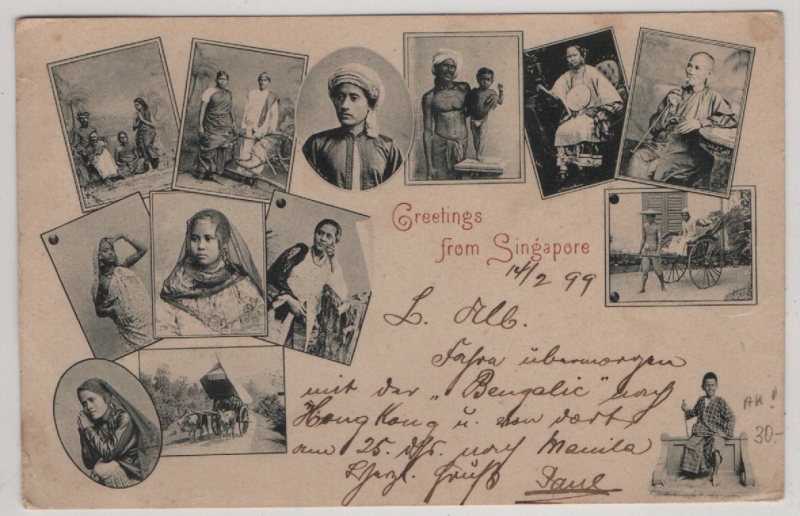 Greetings
from Singapore
14/2 99
L. Alb.
Fahre übermorgen
mit der "Bengalic" nach
Hongkong u. von dort
am 25. ds. nach Manila
Herzl. Gruß Paul
AK!
30.-